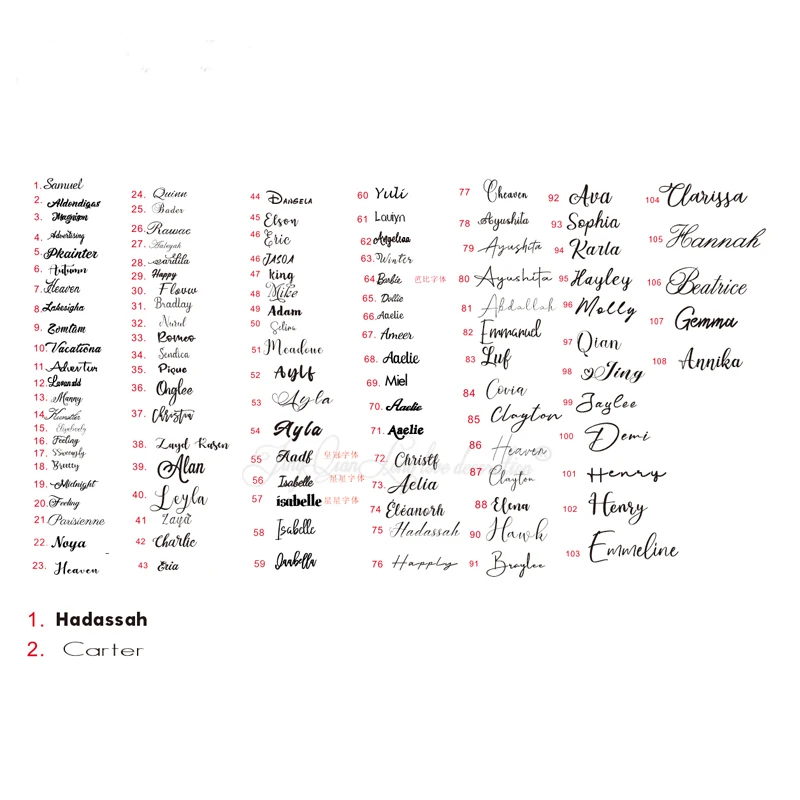 1. Samuel
2. Aldondigas
3. Magnism
4. Advertising
5. Pkainter
6. Autumn
7. Heaven
8. Lakesigha
9. Zomtam
10. Vacationa
11. Advertur
12.
13. Manny
14
15.
16 Feeling
17 Sincerely
18 Breezy
19. Midnight
20. Feeling
21. Parisienne
22. Noya
23. Heaven
24. Quinn
25. Bader
26. Rawac
27. Aaliyah
28.
29. Happy
30. Flovw
31. Bradlay
32. Nurul
33. Romeo
34. Sendica
35. Pique
36. Onglee
37. Christin
38. Zayd Rasen
39. Alan
40. Leyla
41 Zaya
42 Charlie
43 Eria
44 Dangela
45 Elson
46 Eric
46 JASOA
47 king
48 Mike
49 Adam
50 Selina
51 Meadoue
52 Aylf
53 Ayla
54 Ayla
55 Aadf 皇冠字体
56 Isabelle 星星字体
57 isabelle 星星字体
58 Isabelle
59
60 Yuli
61 Lauiyn
62 Angeliea
63. Winter
64 Barbie 芭比字体
65. Dollie
66. Aaelie
67. Ameer
68. Aaelie
69. Miel
70. Aaelie
71. Aaelie
72. Christf
73. Aelia
74 Eleanorh
75 Hadassah
76 Happly
77 Cheaven
78 Ayushita
79 Ayushita
80 Ayushita
81 Abdallah
82 Emmanud
83 Luf
84 Covia
85 Clayton
86 Heaven
87 Clayton
88 Elena
90 Hawk
91 Braylee
92 Ava
93 Sophia
94 Karla
95 Hayley
96 Molly
97 Qian
98 Jing
99 Jaylee
100 Demi
101 Henry
102 Henry
103 Emmeline
104 Clarissa
105 Hannah
106 Beatrice
107 Gemma
108 Annika
1. Hadassah
2. Carter